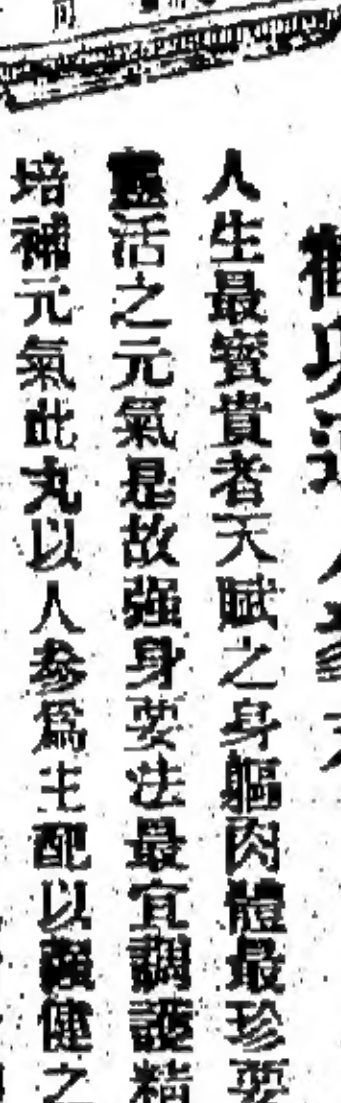 人生最寶貴者天賦之身軀肉體最珍要
靈活之元氣是故强身要法最宜調護精
培補元氣此丸以人參爲主配以强健之